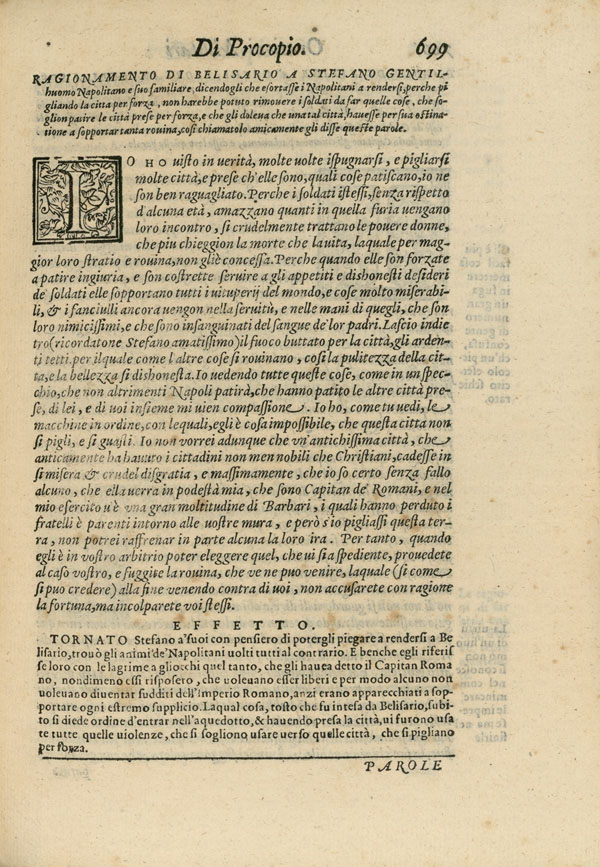 Di Procopio. 699
RAGIONAMENTO DI BELISARIO A STEFANO GENTIL-
huomo Napolitano e suo familiare, dicendogli che esortasse i Napolitani a rendersi, perche pi
gliando la citta per forza, non harebbe potuto rimouere i soldati da far quelle cose, che so-
glion patire le città prese per forza, e che gli doleua che una tal città, hauesse per sua ostina-
tione a sopportar tanta rouina, cosi chiamatolo amicamente gli disse queste parole.
IO HO uisto in verità, molte uolte ispugnarsi, e pigliarsi
molte città, e prese ch'elle sono, quali cose patiscano, io ne
son ben raguagliato. Perche i soldati istessi, senza rispetto
d'alcuna età, amazzano quanti in quella furia uengano
loro incontro, si crudelmente trattano le pouere donne,
che piu chieggion la morte che la uita, laquale per mag-
gior loro stratio e rouina, non gliè concessa. Perche quando elle son forzate
a patire ingiuria, e son costrette seruire a gli appetiti e dishonesti desideri
de' soldati elle sopportano tutti i uituperij del mondo, e cose molto miserabi-
li, & i fanciulli ancora uengon nella seruitù, e nelle mani di quegli, che son
loro nimicissimi, e che sono insanguinati del sangue de' lor padri. Lascio indie
tro (ricordatone Stefano amatissimo) il fuoco buttato per la città, gli arden-
ti tetti, per ilquale come l'altre cose si rouinano, cosi la pulitezza della cit-
ta, e la bellezza si dishonesta. Io uedendo tutte queste cose, come in un spec-
chio, che non altrimenti Napoli patirà, che hanno patito le altre città pre-
se, di lei, e di uoi insieme mi uien compassione. Io ho, come tu uedi, le
macchine in ordine, con lequali, egli è cosa impossibile, che questa citta non
si pigli, e si guasti. Io non vorrei adunque che vn'antichissima città, che
anticamente ha hauuto i cittadini non men nobili che Christiani, cadesse in
si misera & crudel disgratia, e massimamente, che io so certo senza fallo
alcuno, che ella uerra in podestà mia, che sono Capitan de' Romani, e nel
mio esercito u'è una gran moltitudine di Barbari, i quali hanno perduto i
fratelli è parenti intorno alle uostre mura, e però s'io pigliassi questa ter-
ra, non potrei raffrenar in parte alcuna la loro ira. Per tanto, quando
egli è in vostro arbitrio poter eleggere quel, che ui sia spediente, prouedete
al caso vostro, e fuggite la rouina, che ve ne puo venire, laquale (si come
si puo credere) alla fine venendo contra di uoi, non accusarete con ragione
la fortuna, ma incolparete voi stessi.
EFFETTO.
TORNATO Stefano a' suoi con pensiero di potergli piegare a rendersi a Be
lisario, trouò gli animi de' Napolitani uolti tutti al contrario. E benche egli riferis
se loro con le lagrime a gliocchi quel tanto, che gli hauea detto il Capitan Roma
no, nondimeno essi risposero, che uoleuano esser liberi e per modo alcuno non
uoleuano diuentar sudditi dell'Imperio Romano, anzi erano apparecchiati a sop-
portare ogni estremo supplicio. Laqual cosa, tosto che fu intesa da Belisario, subi-
to si diede ordine d'entrar nell'aquedotto, & hauendo presa la città, ui furono usa
te tutte quelle uiolenze, che si sogliono usare uerso quelle città, che si pigliano
per forza.
PAROLE